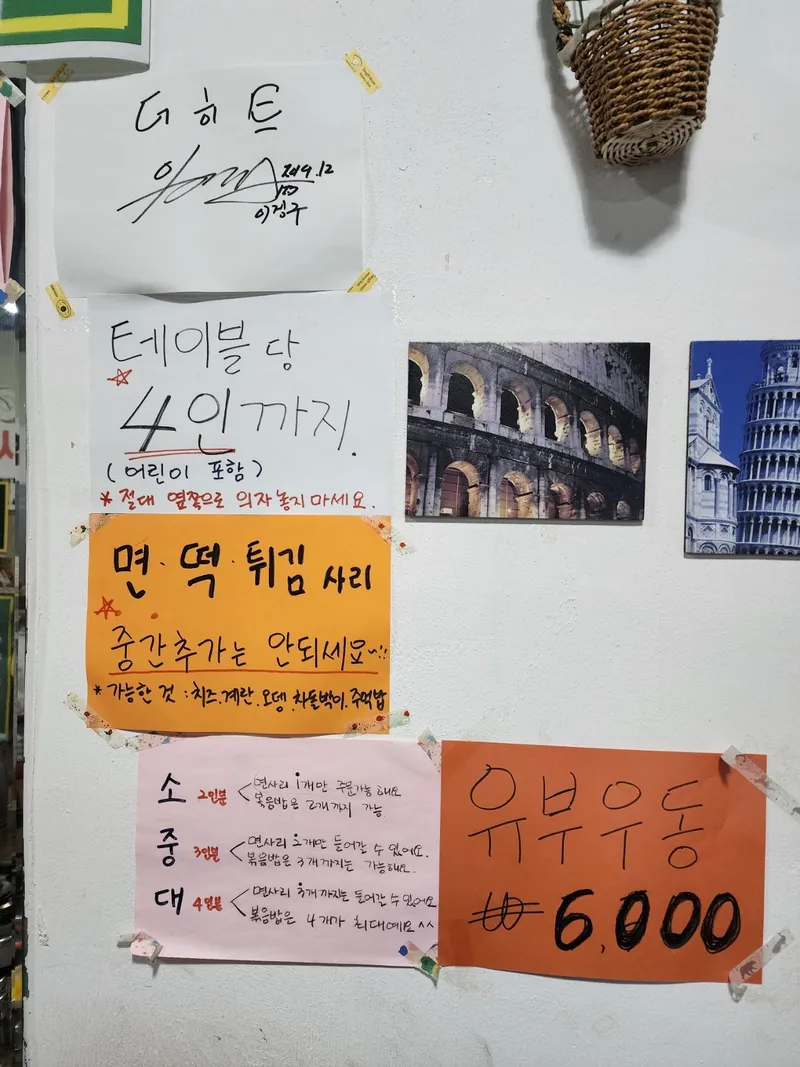 더 히 트
이정구
테이블 당
4인까지.
(어린이 포함)
* 절대 옆쪽으로 의자 놓지 마세요.
면·떡·튀김 사리
중간추가는 안되세요~!!
* 가능한 것 : 치즈.계란.오뎅.차돌박이.주먹밥
소 2인분 면사리 1개만 주문가능해요
볶음밥은 2개까지 가능
중 3인분 면사리 2개만 들어갈 수 있어요.
볶음밥은 3개까지는 가능해요.
대 4인분 면사리 3개까지는 들어갈 수 있어요
볶음밥은 4개가 최대예요^^
유부우동
₩6,000